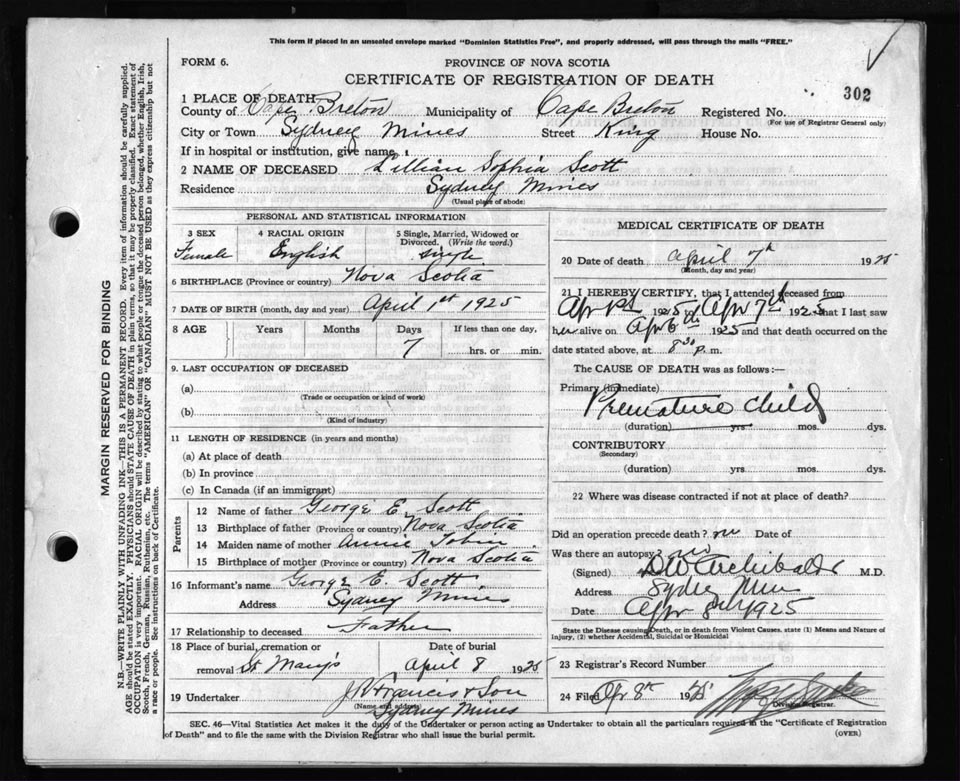 This form if placed in an unsealed envelope marked "Dominion Statistics Free", and properly addressed, will pass through the mails "FREE."
FORM 6.
PROVINCE OF NOVA SCOTIA
CERTIFICATE OF REGISTRATION OF DEATH
302
1 PLACE OF DEATH
County of Cape Breton Municipality of Cape Breton Registered No.
(For use of Registrar General only)
City or Town Sydney Mines Street King House No.
If in hospital or institution, give name
2 NAME OF DECEASED Lillian Sophia Scott
Residence Sydney Mines
(Usual place of abode)
PERSONAL AND STATISTICAL INFORMATION
3 SEX 4 RACIAL ORIGIN 5 Single, Married, Widowed or Divorced. (Write the word.)
Female English single
6 BIRTHPLACE (Province or country) Nova Scotia
7 DATE OF BIRTH (month, day and year) April 1st 1925
8 AGE Years Months Days If less than one day,
7 hrs. or min.
9. LAST OCCUPATION OF DECEASED
(a)
(Trade or occupation or kind of work)
(b)
(Kind of industry)
11 LENGTH OF RESIDENCE (in years and months)
(a) At place of death
(b) In province
(c) In Canada (if an immigrant)
Parents
12 Name of father George E. Scott
13 Birthplace of father (Province or country) Nova Scotia
14 Maiden name of mother Annie Tobin
15 Birthplace of mother (Province or country) Nova Scotia
16 Informant's name George E Scott
Address Sydney Mines
17 Relationship to deceased Father
18 Place of burial, cremation or Date of burial
removal St Mary's April 8 1925
19 Undertaker J R Francis & Son
(Name and address)
Sydney Mines
MEDICAL CERTIFICATE OF DEATH
20 Date of death April 7th 1925
(Month, day and year)
21 I HEREBY CERTIFY, that I attended deceased from
Apr 1st 1925 Apr 7th 1925 that I last saw
her alive on Apr 6th 1925 and that death occurred on
date stated above, at 8 30 p. m.
The CAUSE OF DEATH was as follows:—
Primary (immediate)
Premature child
(duration) yrs. mos. dys.
CONTRIBUTORY
(Secondary)
(duration) yrs. mos. dys.
22 Where was disease contracted if not at place of death?
Did an operation precede death? no Date of
Was there an autopsy? no
(Signed) DW Archibald M.D.
Address Sydney Mines
Date Apr 8th 1925
State the Disease causing Death, or in death from Violent Causes, state (1) Means and Nature of
Injury, (2) whether Accidental, Suicidal or Homicidal
23 Registrar's Record Number
24 Filed Apr 8th 1925
Division Registrar.
SEC. 46—Vital Statistics Act makes it the duty of the Undertaker or person acting as Undertaker to obtain all the particulars required in the "Certificate of Registration
of Death" and to file the same with the Division Registrar who shall issue the burial permit.
(OVER)
MARGIN RESERVED FOR BINDING
N.B.—WRITE PLAINLY WITH UNFADING INK—THIS IS A PERMANENT RECORD. Every item of information should be carefully supplied.
AGE should be stated EXACTLY. PHYSICIANS should STATE CAUSE OF DEATH in plain terms, so that it may be properly classified. Exact statement of
OCCUPATION is very important. RACIAL ORIGIN will be described by stating to what people or tongue the deceased person belonged, whether English, Irish,
Scotch, French, German, Russian, Ruthenian, etc. The terms "AMERICAN" OR "CANADIAN" MUST NOT BE USED as they express citizenship but not
a race or people. See instructions on back of Certificate.